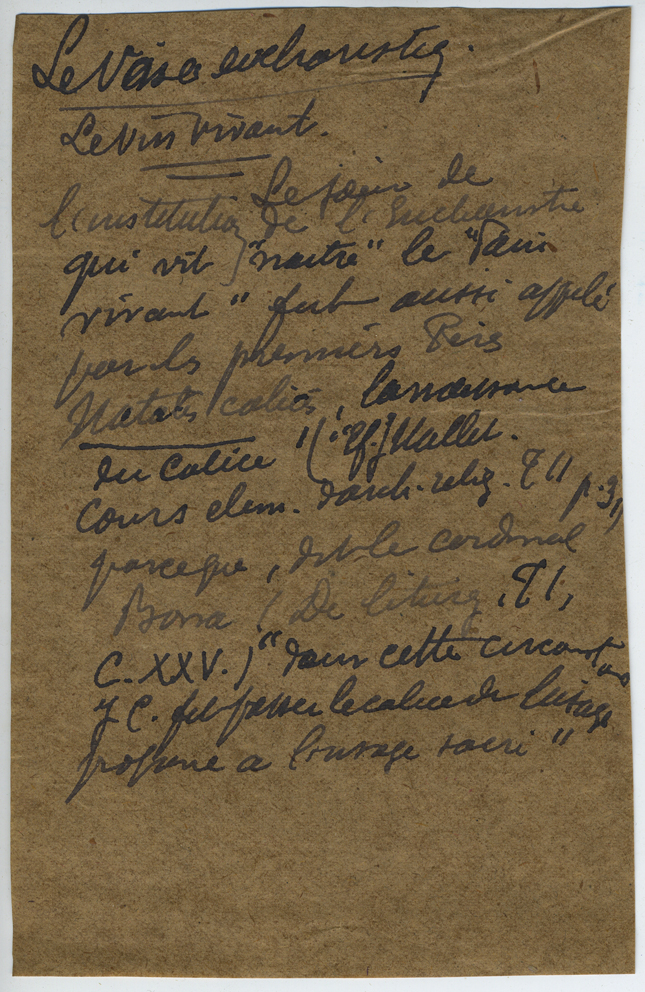 Le Vase eucharistiq.
Le Vin vivant.
Le jour de
l'institution de l'Eucharistie
qui vit "naitre" le "Pain
vivant" fut aussi appelé
par les premiers Pères
Natalis calicis, la naissance
du Calice" (cf. Mallet.
Cours elem. d'arch. relig. T II p. 3,
parceque, dit le cardinal
Bona (De liturg. T I,
C. XXV.) "dans cette circonstans
J C. fit passer le calice de l'usage
profane a l'usage sacri"